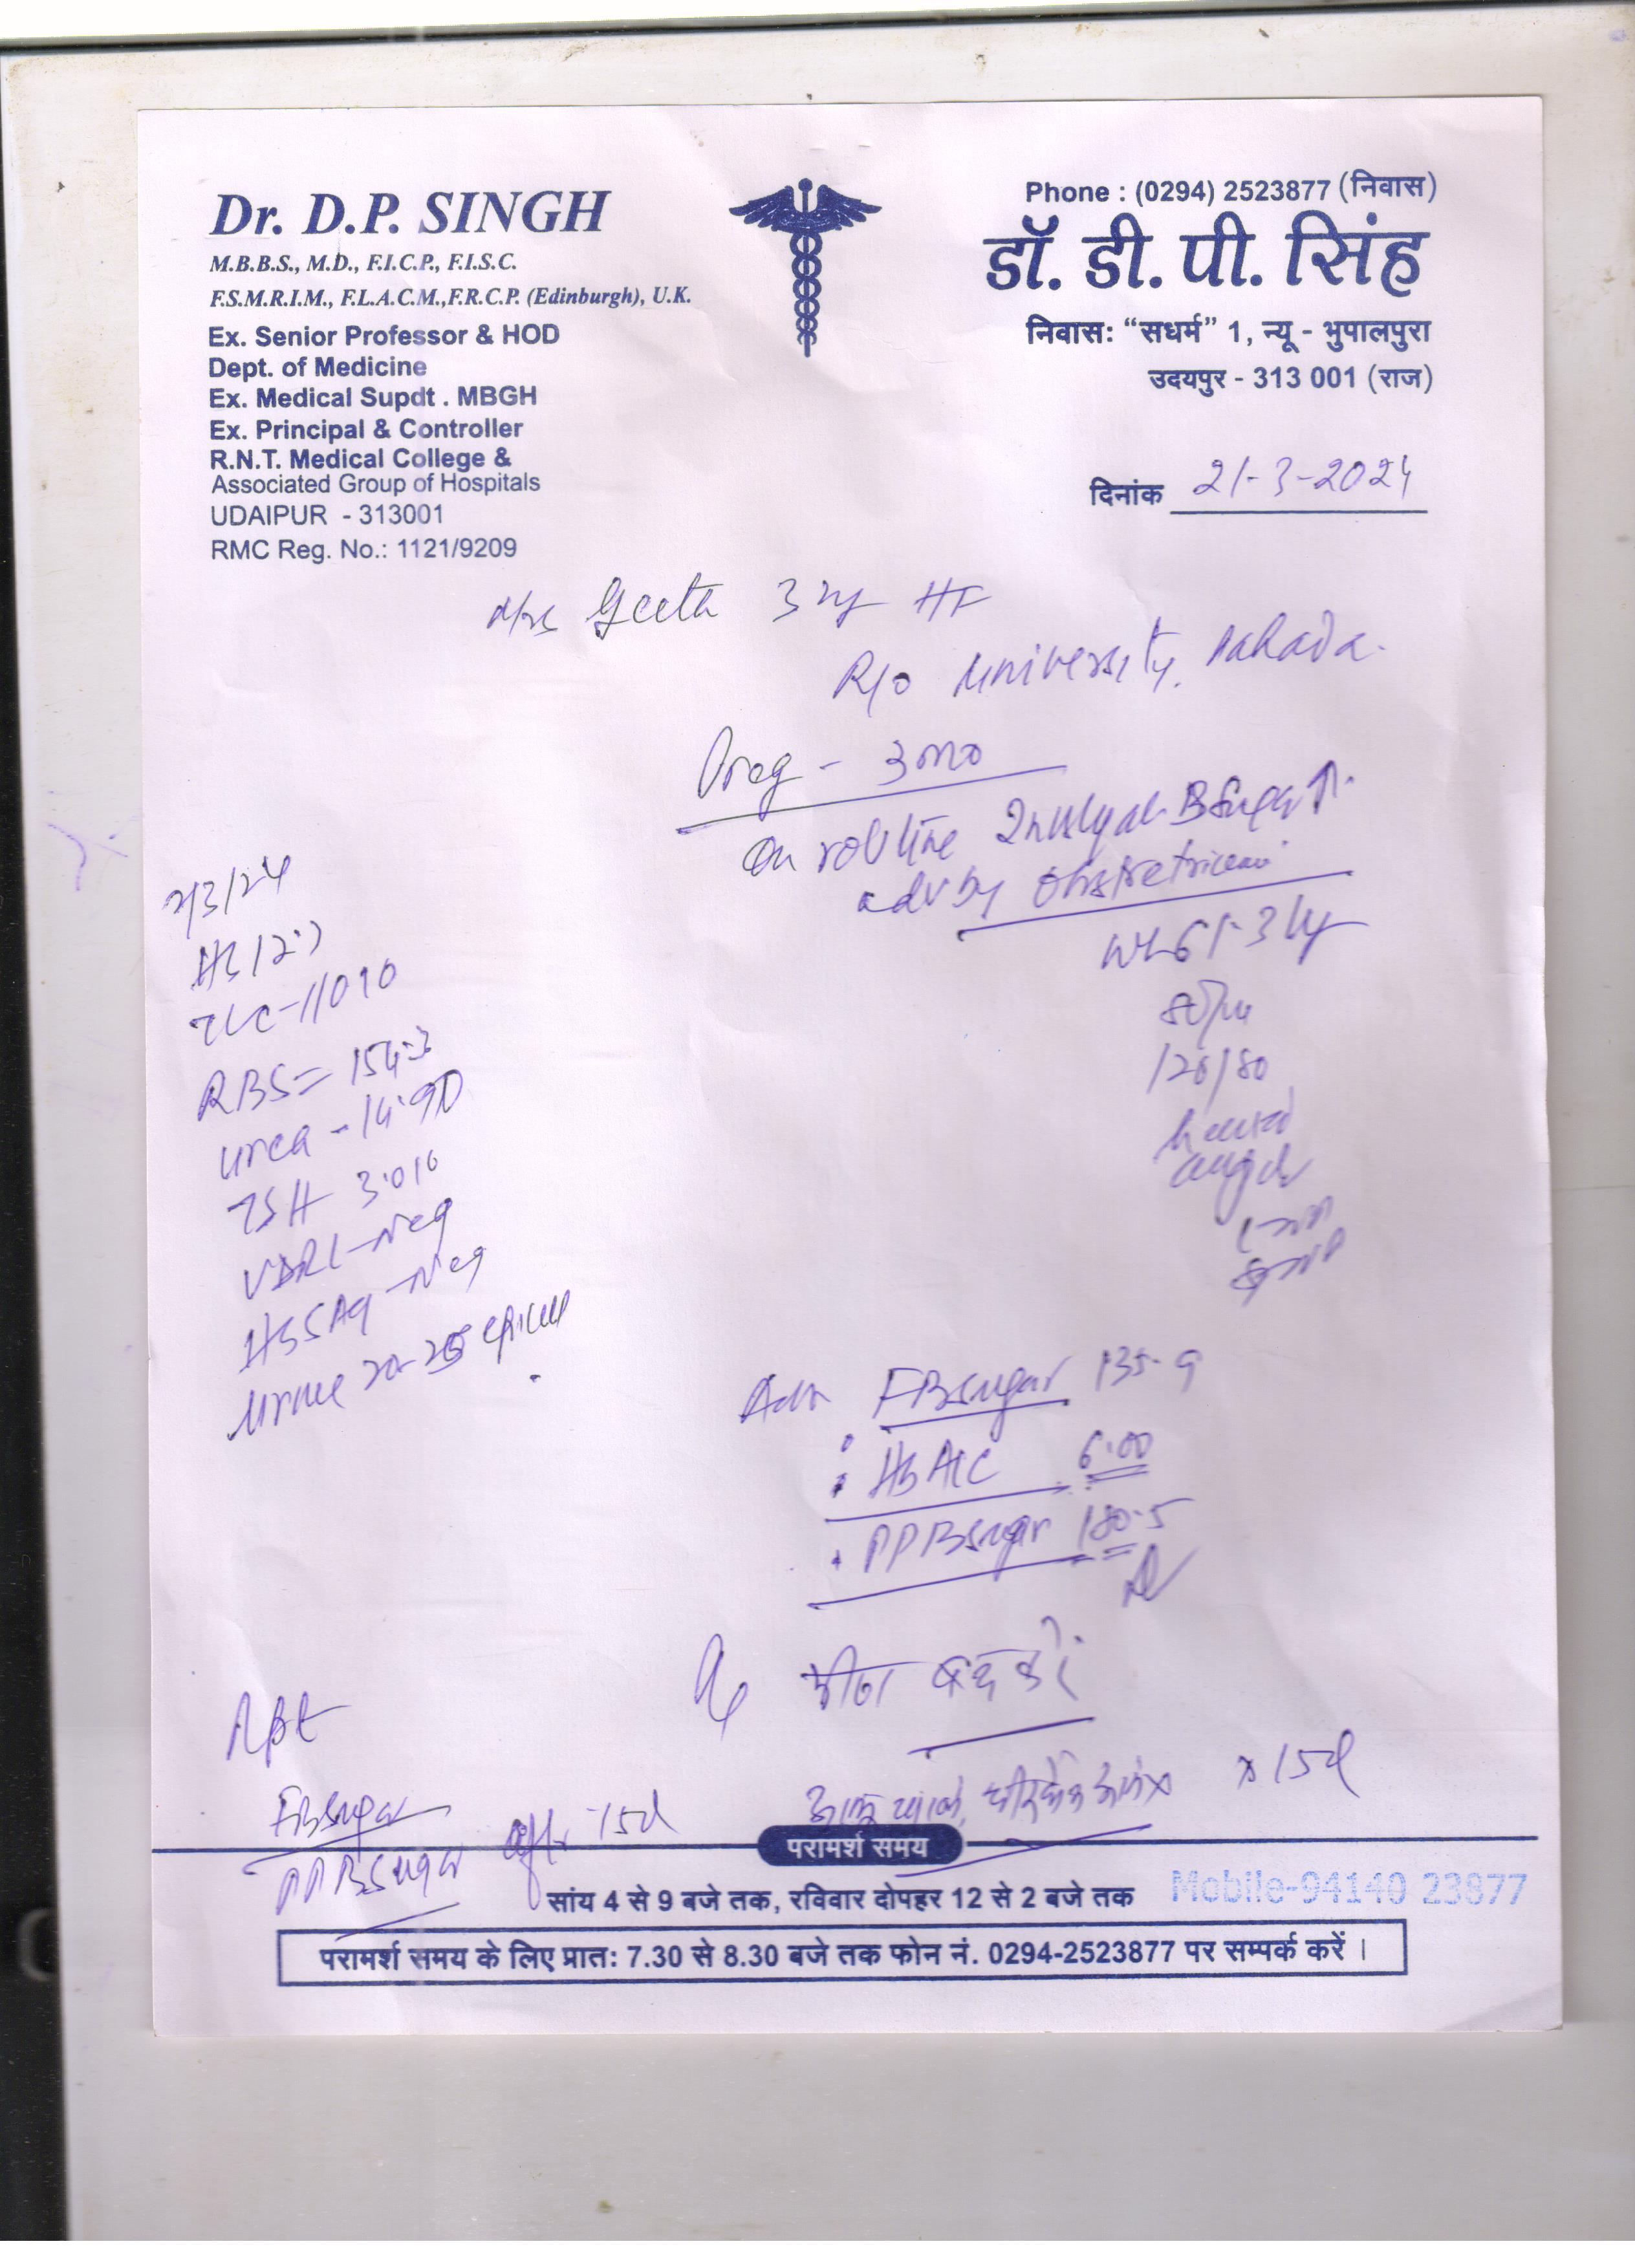 Dr. D.P. SINGH
M.B.B.S., M.D., F.I.C.P., F.I.S.C.
F.S.M.R.I.M., F.L.A.C.M.,F.R.C.P. (Edinburgh), U.K.
Ex. Senior Professor & HOD
Dept. of Medicine
Ex. Medical Supdt . MBGH
Ex. Principal & Controller
R.N.T. Medical College &
Associated Group of Hospitals
UDAIPUR - 313001
RMC Reg. No.: 1121/9209
Phone : (0294) 2523877 (निवास)
डॉ. डी. पी. सिंह
निवास: “सधर्म” 1, न्यू - भुपालपुरा
उदयपुर - 313 001 (राज)
दिनांक 21-3-2024
Mrs Geeta HF
R/o University, Pahada.
Preg - 3mo
on routine BSugar ↑
adv by
Wt 61.3 kg
80/m
120/80
2/3/24
Hb 12.7
TLC-11010
RBS= 154.3
Urea - 14.90
TSH 3.010
VDRL-Neg
HBSAg -Neg
Urine 20-25
Adv FBsugar 135.9
HbA1C 6.00
PPBsugar 180.5
चीनी बन्द करें
x 15d
Rpt
FBsugar
PPBSugar after 15d
परामर्श समय
सांय 4 से 9 बजे तक, रविवार दोपहर 12 से 2 बजे तक
Mobile-94140 23877
परामर्श समय के लिए प्रातः 7.30 से 8.30 बजे तक फोन नं. 0294-2523877 पर सम्पर्क करें ।